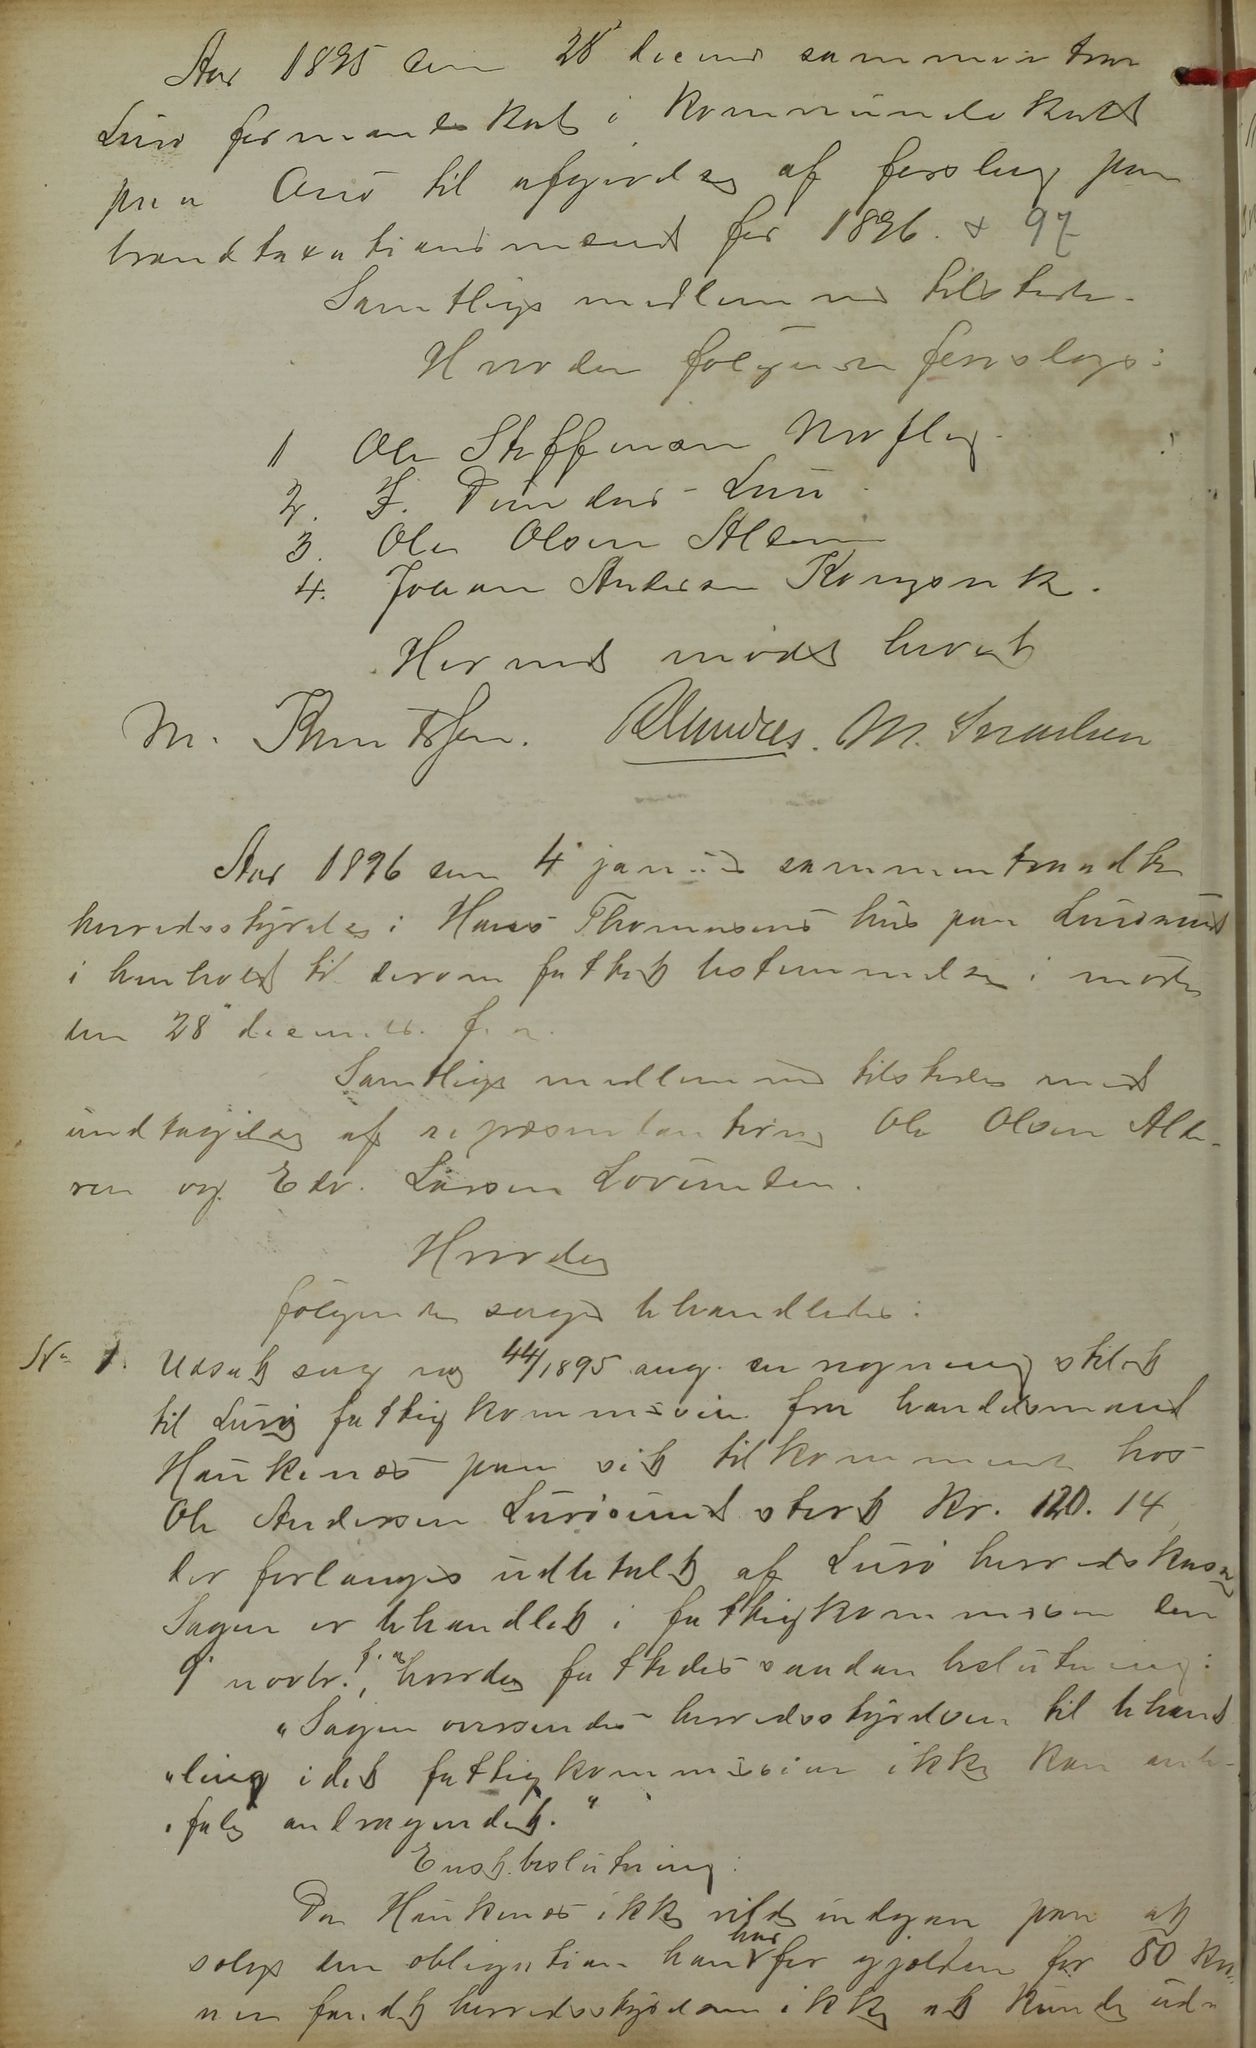 Aar 1895 den 28' decembr sammen traa
Lurö formandskab i kommunelokalet
paa Onö til afgivelse af forslag paa
brandtaxationsmænd for 1896. & 97
Samtlige medlemmer tilstede.
Hvorden følgende foreslogs:
1 Ole Steffensen
2. F. Dundas - Lurö
3. Ole Olsen Alderen
4. Johan Andersen Kongsvik.
Hermed mödet hævet
M. Knutsen. Dundas. M. Israelsen
Aar 1896 den 4' januar sammentraadte
herredsstyrelse i Hans Thomasens hus paa Lurösund
i henhold til derom fattet bestemmelse i möde
den 28" decembr. f. a.
Samtlige medlemmer tilstede med
undtagelse af repræsentanterne Ole Olsen Alde-
ren og Edv. Larsen Lovunden.
Hvorder
følgende sager behandledes:
No 1. Udsat sag no 44/1895 ang. en regning stilet
til Lurö fattigkommission fra handelsmand
Haukenæs paa sit tilkommende hos
Ole Andersen Lurösund stort Kr. 120. 14
der forlanges udbetalt af Lurö herredskasse
Sagen er behandlet i fattigkommissionen den
9' novbr. f. a., hvorder fattedes saadan beslutning:
"Sagen oversendes herredsstyrelsen til behand
"ling idet fattigkommissionen ikke kan anbe-
"fale andragendet."
Enst. beslutning:
Da Haukenæs ikke vilde indgaa paa at
selge den obligation han har for gjælden for 50 kro-
ner fandt herredsstyrelsen ikke at kunde ud-